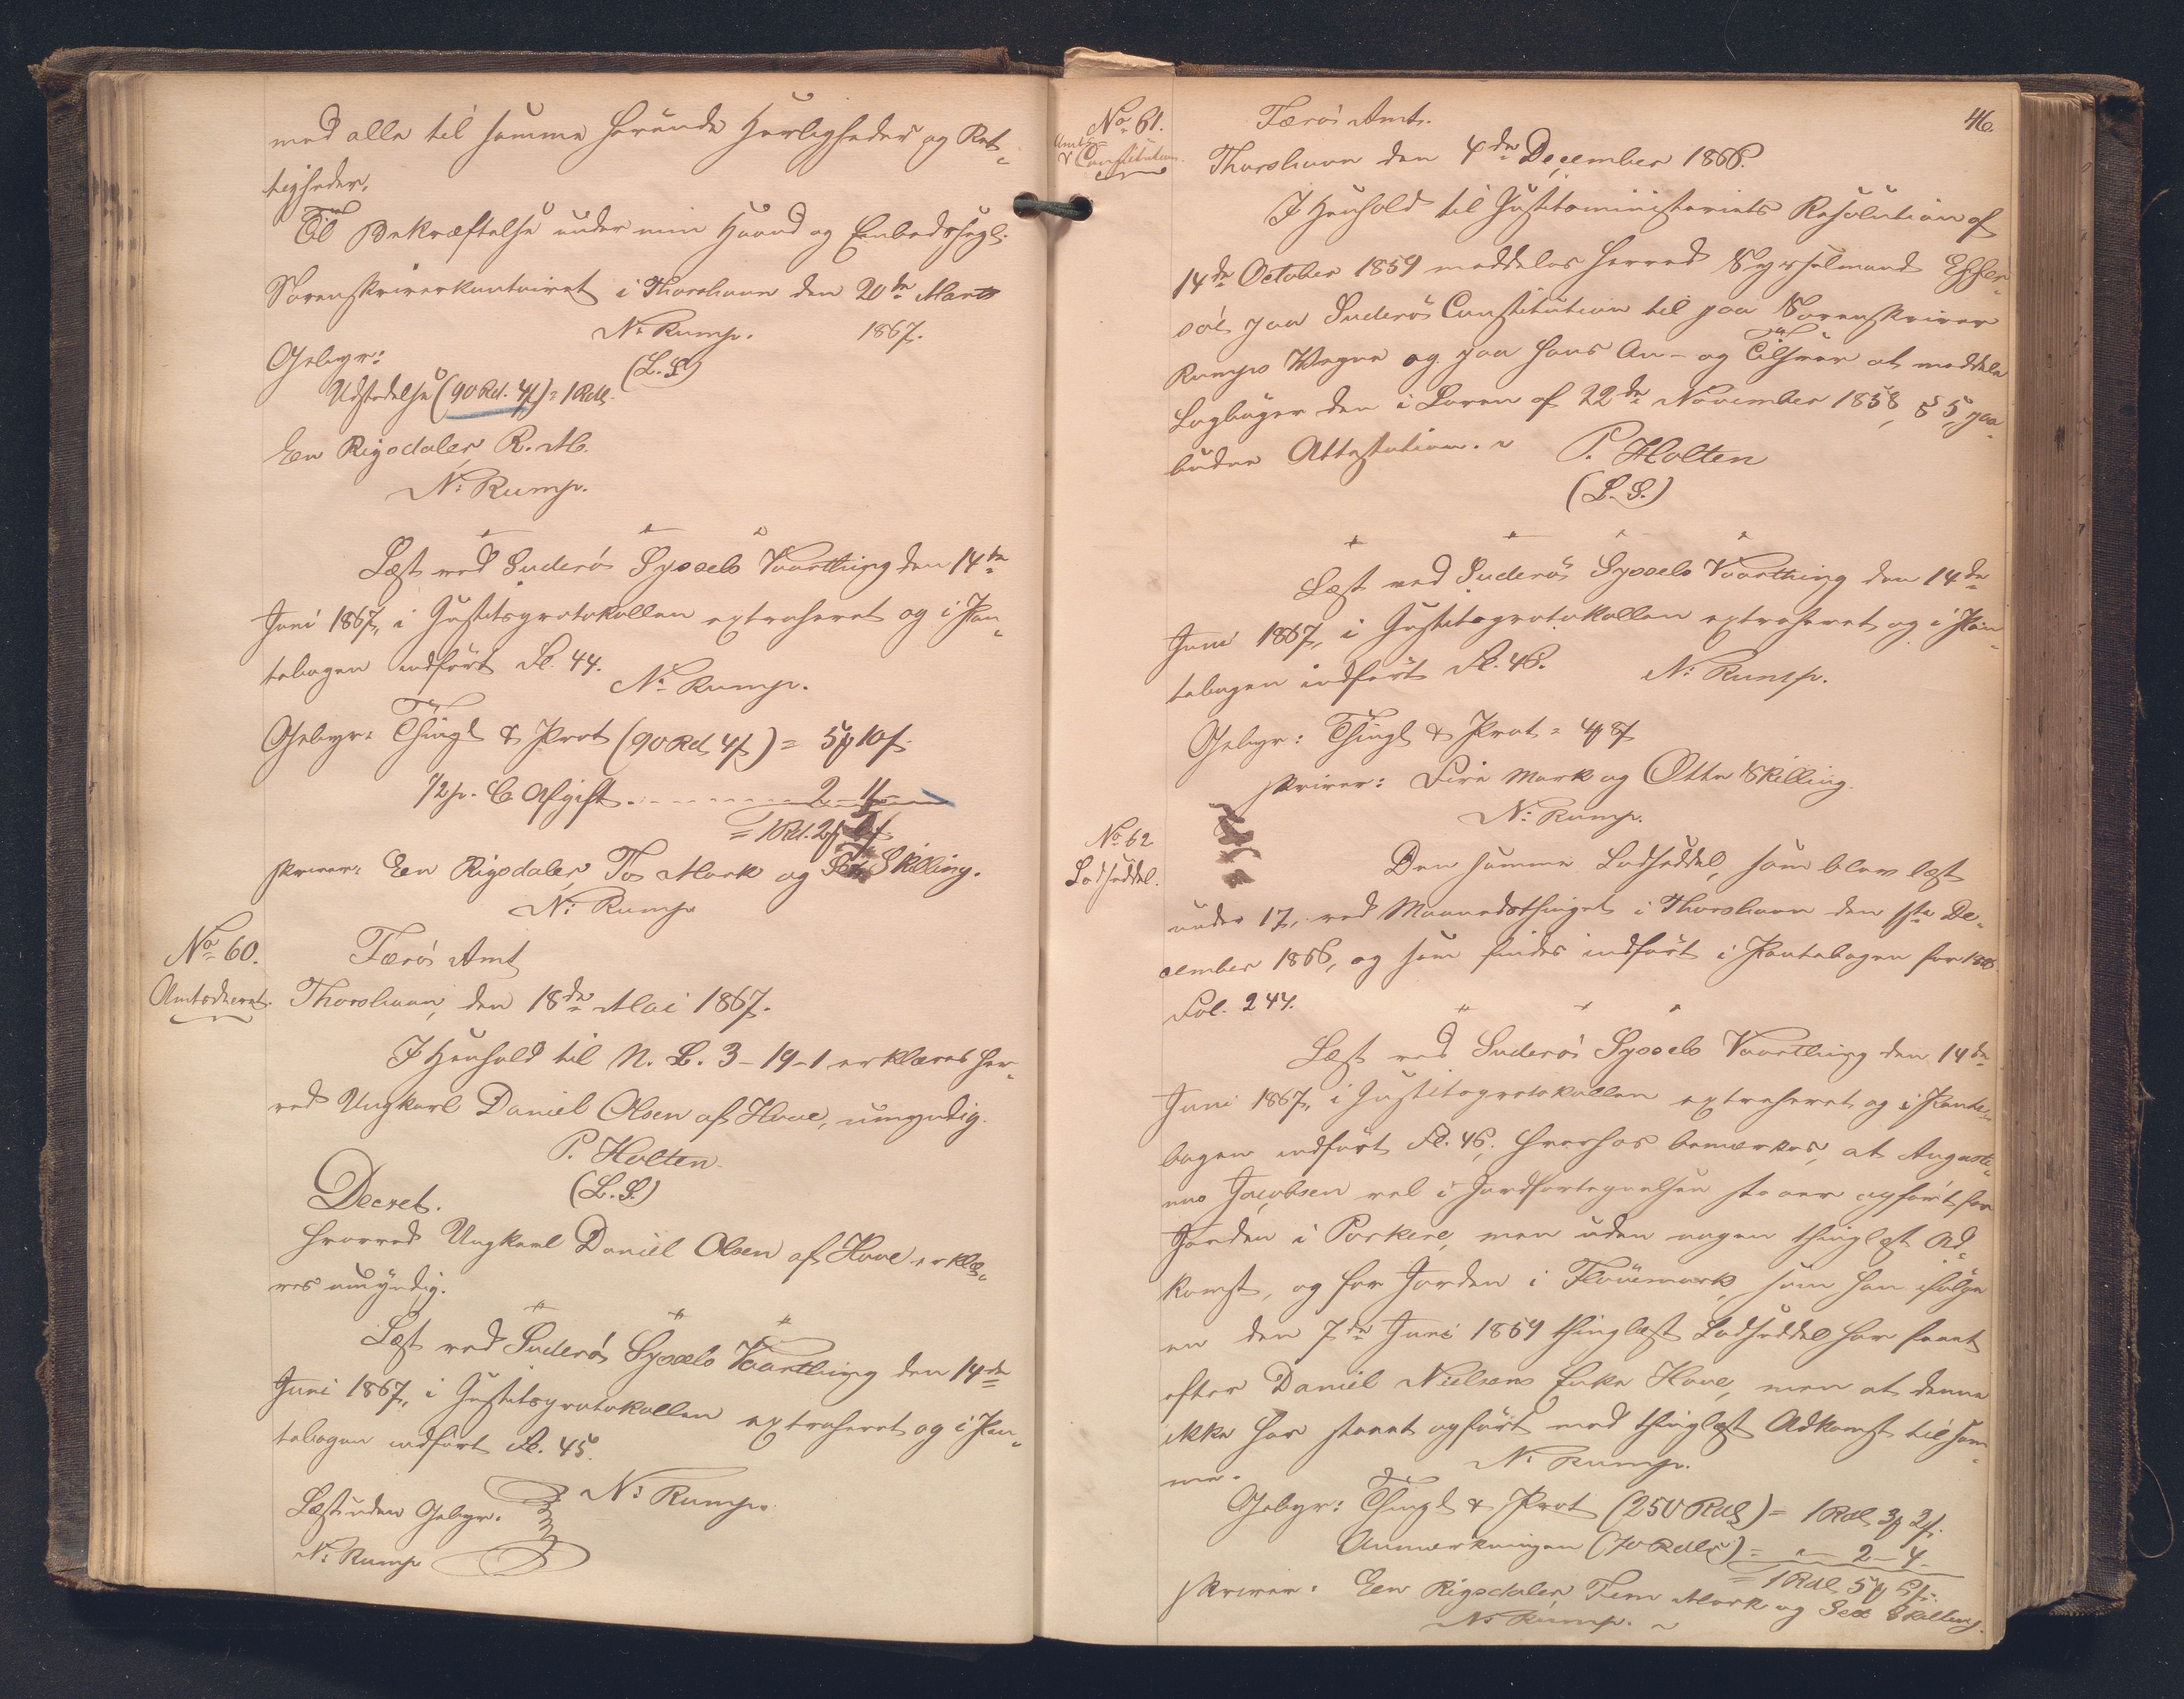 med alle til samme hørende Herligheder og Ret-
tigheder.
Til Bekræftelse under min Haand og Embedssegl.
Sorenskriverkontoiret i Thorshavn den 20de Marts
N. Rump. 1867.
(L.S)
Gebyr:
Udstedelse (90 Rd. 4ß) = 1 Rdl.
Een Rigsdaler R.M.
N. Rump.
Læst ved Suderö Syssels Vaarthing den 14de
Juni 1867, i Justitsprotokollen extraheret og i Pan-
tebogen indført Fl. 44.
N. Rump.
Gebyr: Thingl & Prot (90 Rd 4ß) = 5 10ß
1/2 p. C Afgift . - - - - 2 - 11 -
= 1 Rd. 2
skriver: Een Rigsdaler To Mark og Skilling.
N. Rump
No 60.
Amtsdecret.
Færö Amt
Thorshavn, den 18de Mai 1867.
I Henhold til N. L. 3-19-1 erklæres her-
ved Ungkarl Daniel Olsen af Hove, umyndig.
P. Holten
(L.S.)
Decret.
hvorved Ungkarl Daniel Olsen af Hove erklæ-
res umyndig.
Læst ved Suderö Syssels Vaarthing den 14de
Juni 1867, i Justitsprotokollen extraheret og i Pan-
tebogen indført Fl. 45.
N. Rump.
Læst uden Gebyr.
N. Rump
46.
No 61.
Amts-
Constitution.
Færö Amt.
Thorshavn den 4de December 1866.
I Henhold til Justitsministeriets Resolution af
14de October 1859 meddeles herved Sysselmand Effer-
söe paa Suderö Constitution til paa Sorenskriver
Rumps Vegne og paa hans An- og Tilsvar at meddele
Lagbøger den i Loven af 22de November 1858, § 5, paa-
budne Attestation. P. Holten
(L.S.)
Læst ved Suderö Syssels Vaarthing den 14de
Juni 1867, i Justitsprotokollen extraheret og i Pan-
tebogen indført Fl. 46. N. Rump.
Gebyr: Thingl & Prot = 4 8ß
skriver: Fire Mark og Otte Skilling.
N. Rump.
No 62
Lodseddel.
Den samme Lodseddel, som blev læst
under 17, ved Maanedsthinget i Thorshavn den 1ste De-
cember 1866, og som findes indført i Pantebogen for 1866
Fol. 244.
Læst ved Suderö Syssels Vaarthing den 14de
Juni 1867, i Justitsprotokollen extraheret og i Pante-
bogen indført Fl. 46, hvorhos bemærkes, at Augusti-
nus Jacobsen vel i Jordfortegnelsen staaer opført for
Jorden i Porkere, men uden nogen thinglæst Ad-
komst, og for Jorden i Flöuemark, som han ifølge
en den 7de Juni 1859 thinglæst Lodseddel har faaet
efter Daniel Nielsens Enke Hove, men at denne
ikke har staaet opført med thinglæst Adkomst til sam-
me. N. Rump.
Gebyr: Thingl & Prot (250 Rdl) = 1 Rdl. 3 2ß.
Anmærkningen (70 Rdlr) = " - 2 - 4 -
= 1 Rdl 5 6ß.
skriver: Een Rigsdaler Fem Mark og Sex Skilling.
N. Rump.